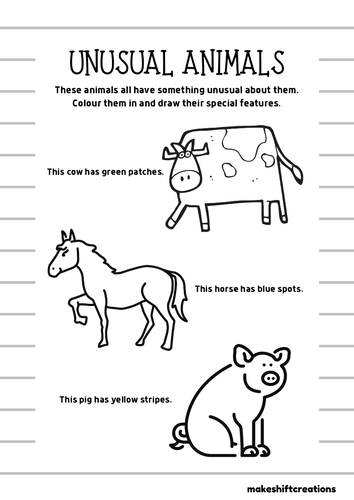 UNUSUAL ANIMALS
These animals all have something unusual about them.
Colour them in and draw their special features.
This cow has green patches.
This horse has blue spots.
This pig has yellow stripes.
makeshiftcreations